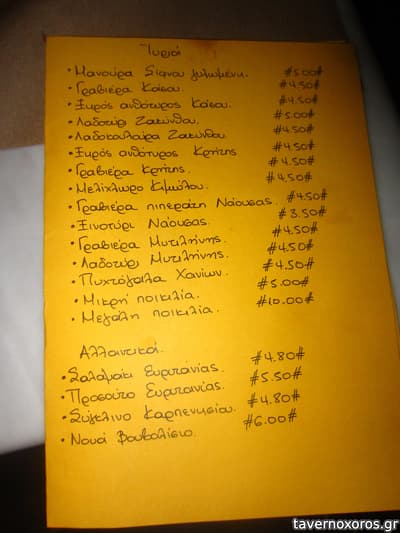 Τυριά
• Μανούρα Σίφνου γυλωμένη. #5.00#
• Γραβιέρα Κάσου. #4.50#
• Ξυρός ανθότυρος Κάσου. #4.50#
• Λαδοτύρι Ζακύνθου. #5.00#
• Ζακύνθου. #4.50#
• Ξυρός ανθότυρος Κρήτης #4.50#
• Γραβιέρα Κρήτης. #4.50#
• Μελίχλωρο Κιμώλου. #4.50#
• Γραβιέρα πιπεράτη Νάουσας. #4.50#
• Ξινοτύρι Νάουσας. #3.50#
• Γραβιέρα Μυτιλήνης. #4.50#
• Λαδοτύρι Μυτιλήνης. #4.50#
• Πυχτόγαλα Χανίων. #4.50#
• Μικρή ποικιλία. #5.00#
• Μεγάλη ποικιλία. #10.00#
Αλλαντικά.
• Σαλαμάκι Ευρυτανίας. #4.80#
• Προσούτο Ευρυτανίας. #5.50#
• Σύγκλινο Καρπενησίου. #4.80#
• Νουά Βουβαλίσιο. #6.00#
tavernoxoros.gr